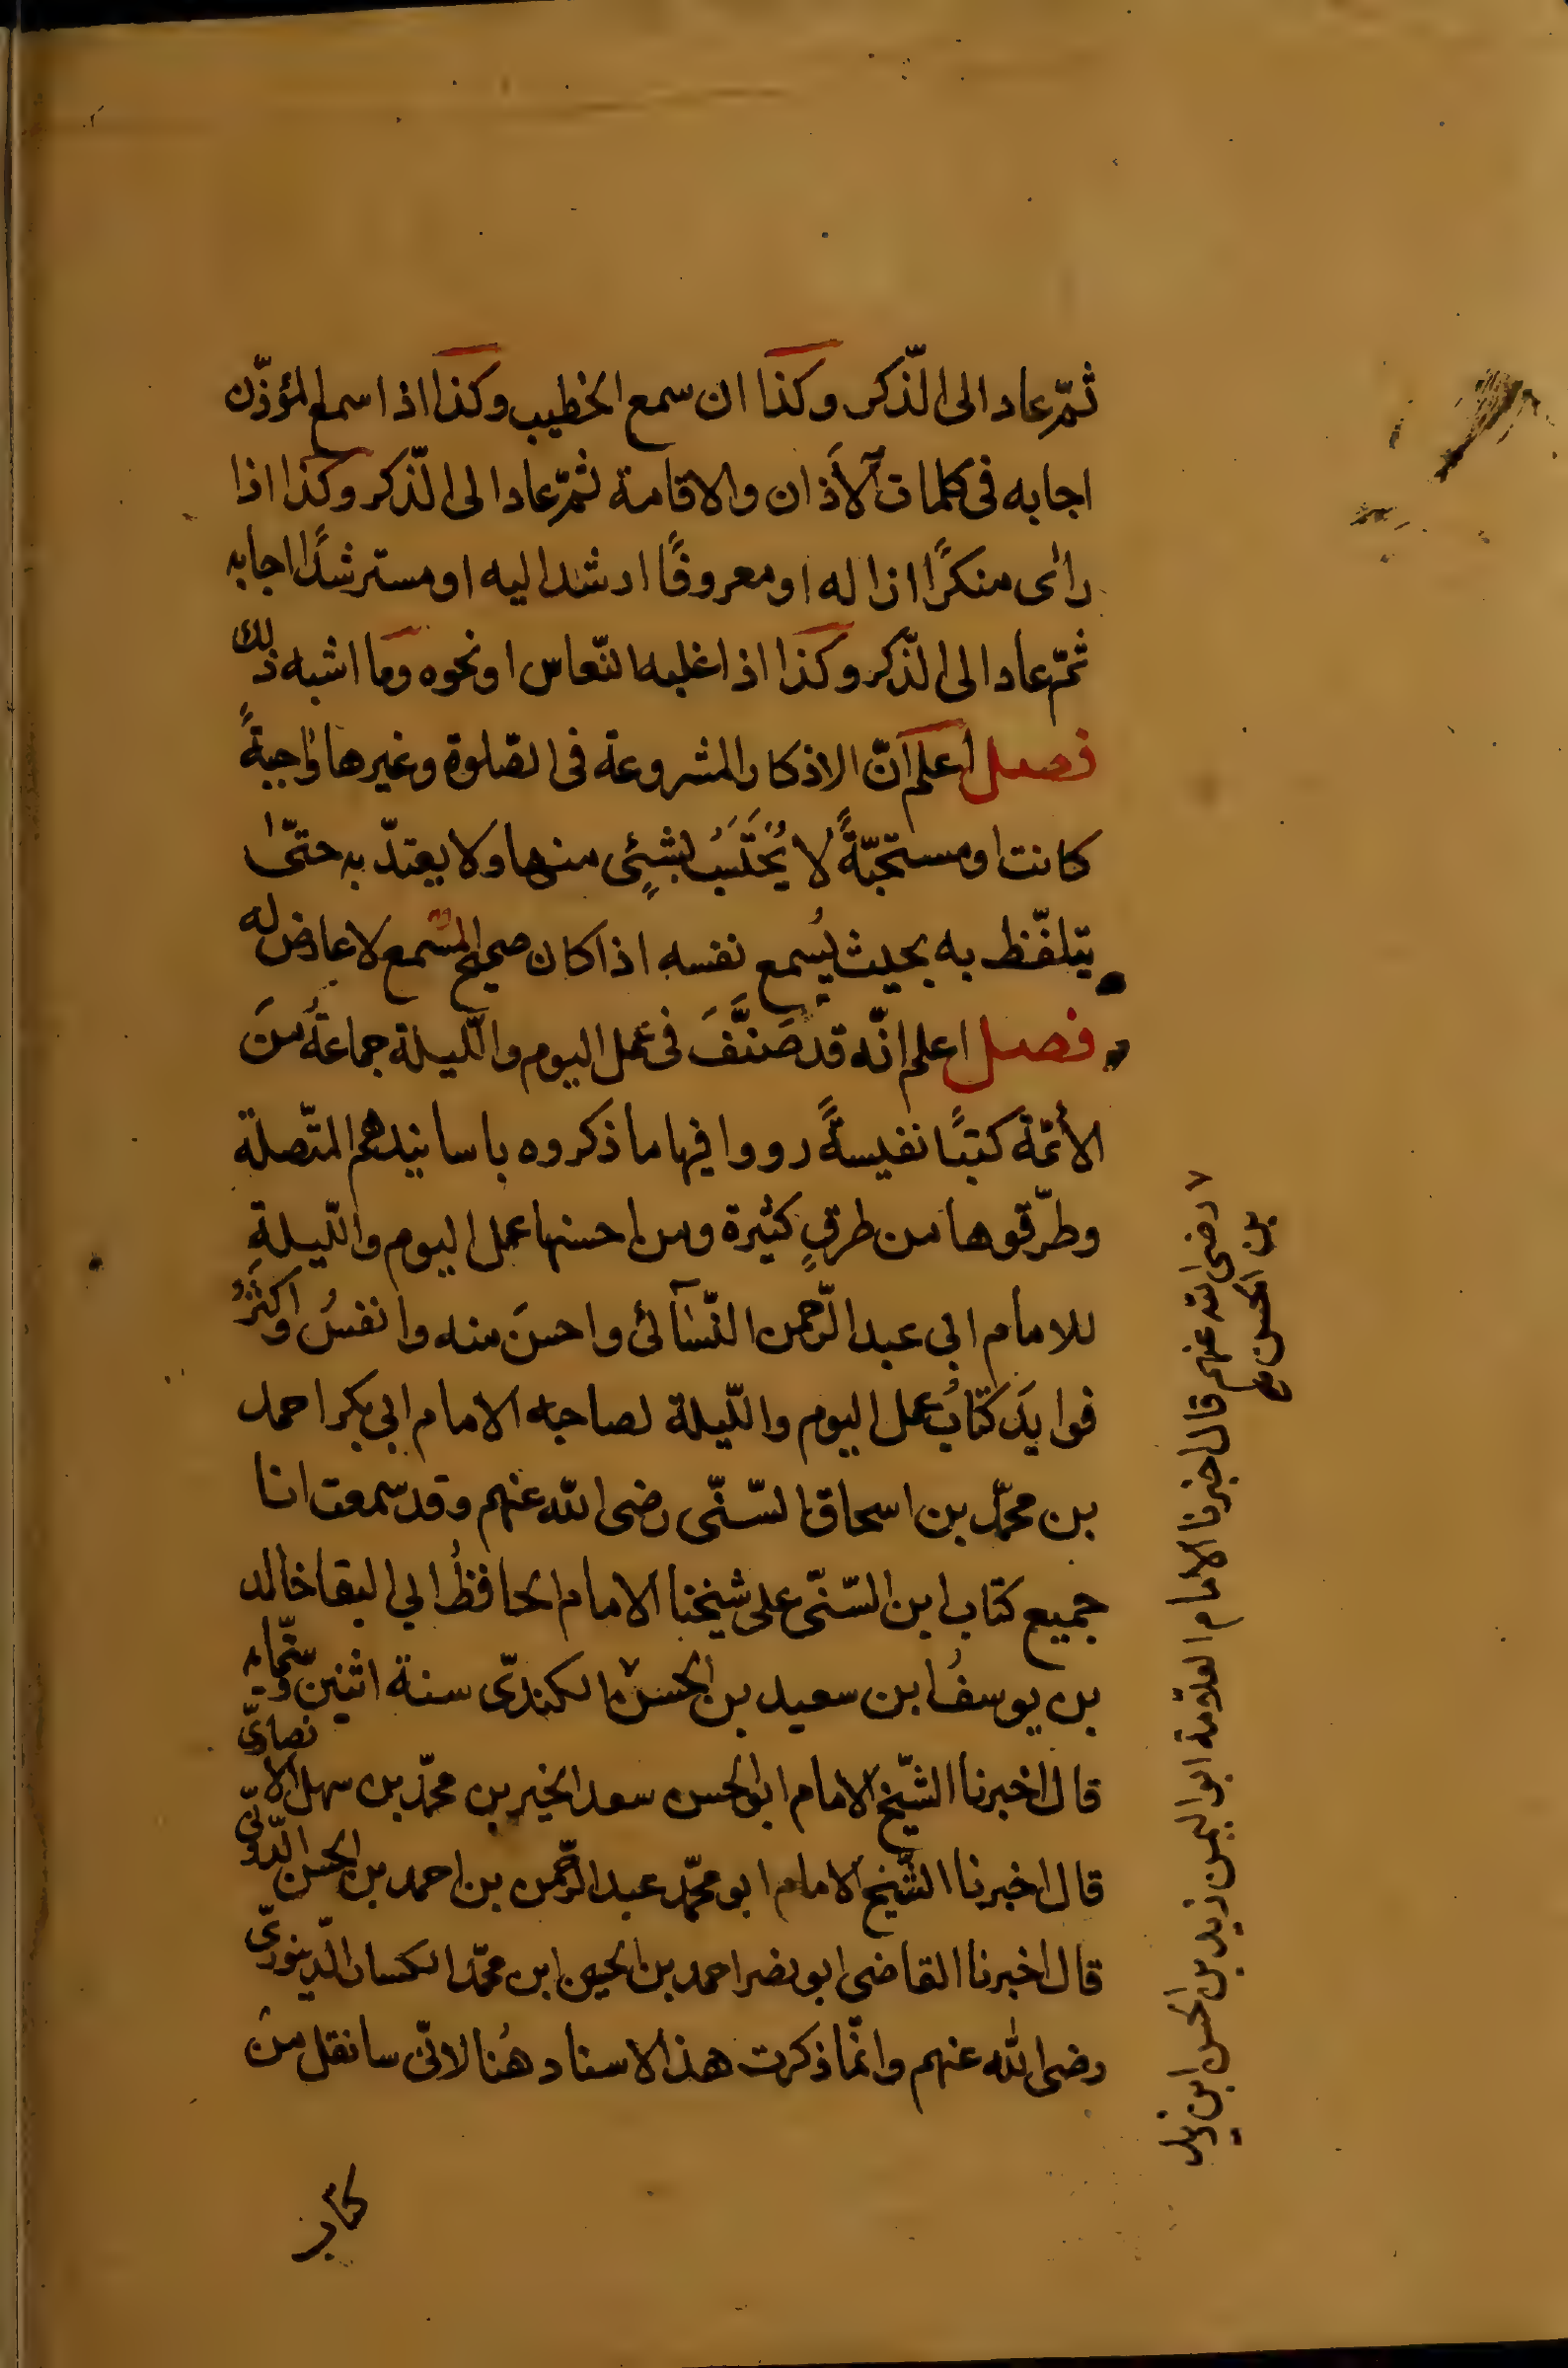 ثمّ عاد الى الذّكر وكذا ان سمع الخطيب وكذا اذا سمع المؤذّن
اجابه فى كلمات الأذان والاقامة ثمّ عاد الى الذّكر وكذا اذا
رأى منكرًا ازاله او معروفًا ارشد اليه او مسترشدًا اجابه
ثمّ عاد الى الذّكر وكذا اذا غلبه النّعاس او نحوه وما اشبه ذلك
فصل اعلم انّ الاذكار المشروعة فى الصّلوة وغيرها واجبةً
كانت او مستحبّةً لا يُحْتَسَبُ بشيئٍ منها ولا يعتدّ به حتّى
يتلفّظ به بحيث يُسمع نفسه اذا كان صحيح السّمع لا عارض له
فصل اعلم انّه قد صَنَّفَ فى عمل اليوم واللّيلة جماعةٌ من
الأئمّة كتبًا نفيسةً رووا فيها ما ذكروه باسانيدهم المتّصلة
وطرّقوها من طرقٍ كثيرة ومن احسنها عمل اليوم واللّيلة
للامام ابى عبد الرّحمن النّسآئى واحسن منه وانفسُ واكثرُ
فوايدَ كتابُ عمل اليوم واللّيلة لصاحبه الامام ابى بكر احمد
بن محمّد بن اسحاق السّنّى رضى الله عنهم وقد سمعت انا
جميع كتاب ابن السّنّى على شيخنا الامام الحافظ ابي البقا خالد
بن يوسف ابن سعيد بن الحسن ٧ الكندىّ سنة اثنين وستّمايه
قال اخبرنا الشّيخ الامام ابو الحسن سعد الخير بن محمّد بن سهل الانصارىّ
قال اخبرنا الشّيخ الامام ابو محمّد عبد الرّحمن بن احمد بن الحسن الدّونىّ
قال اخبرنا القاضى ابو نصر احمد بن الحسين ابن محمّد الكسار الدّينورىّ
رضى الله عنهم وانّما ذكرت هذا الاسناد هُنا لانّى سانقل من
كتاب
٧ رضى الله عنهم قال اخبرنا الامام العلّامة ابو اليمن زيد بن الحسن ابن زيد
بن الحسن صح